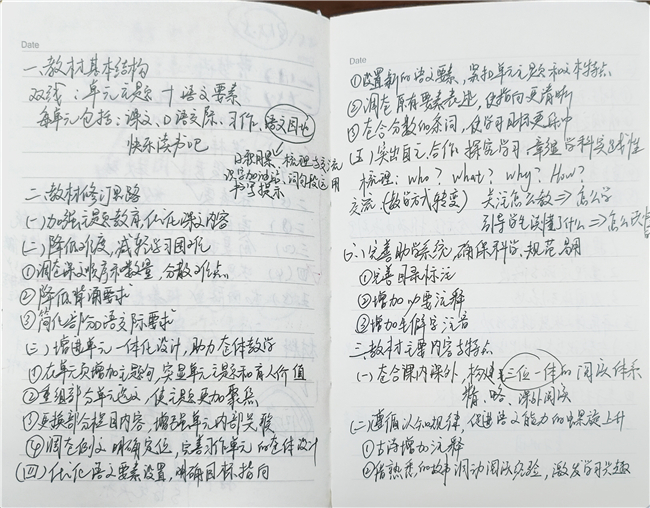 Date
一、教材基本结构
双线：单元主题 + 语文要素
每单元包括：课文、口语交际、习作、语文园地
快乐读书吧
日积月累 梳理与交流
识字加油站、词句段运用
书写提示
二、教材修订思路
(一)加强主题教育，优化课文内容
(二)降低难度，减轻学习困难
①调整课文顺序和数量，分散难点
②降低背诵要求
③简化部分口语交际要求
(三)增进单元一体化设计，助力整体教学
①在单元页增加主题句，突显单元主题和育人价值
②重组部分单元选文，使主题更加聚焦
③更换部分栏目内容，增强单元内部关联
④调整例文 明确定位，完善习作单元的整体设计
(四)优化语文要素设置，明确目标指向
Date
①设置新的语文要素，紧扣单元主题和文本特点
②调整原有要素表述，使指向更清晰
③整合分散的条词，使学习更集中
(五)突出自主、合作、探究学习，彰显学科实践性
梳理：Who？What？Why？How？
交流(教学方式转变) 关注怎么教⇒怎么学
引导学生读懂了什么⇒怎么读懂
(六)完善助学系统，确保科学、规范、易用
①完善目录标注
②增加必要注释
③增加生僻字注音
三、教材主要内容与特点
(一)整合课内课外，构建三位一体的阅读体系
精、略、课外阅读
(二)遵循认知规律，促进语文能力的螺旋上升
①古诗增加注释
②借熟悉的故事调动阅读经验，激发学习兴趣